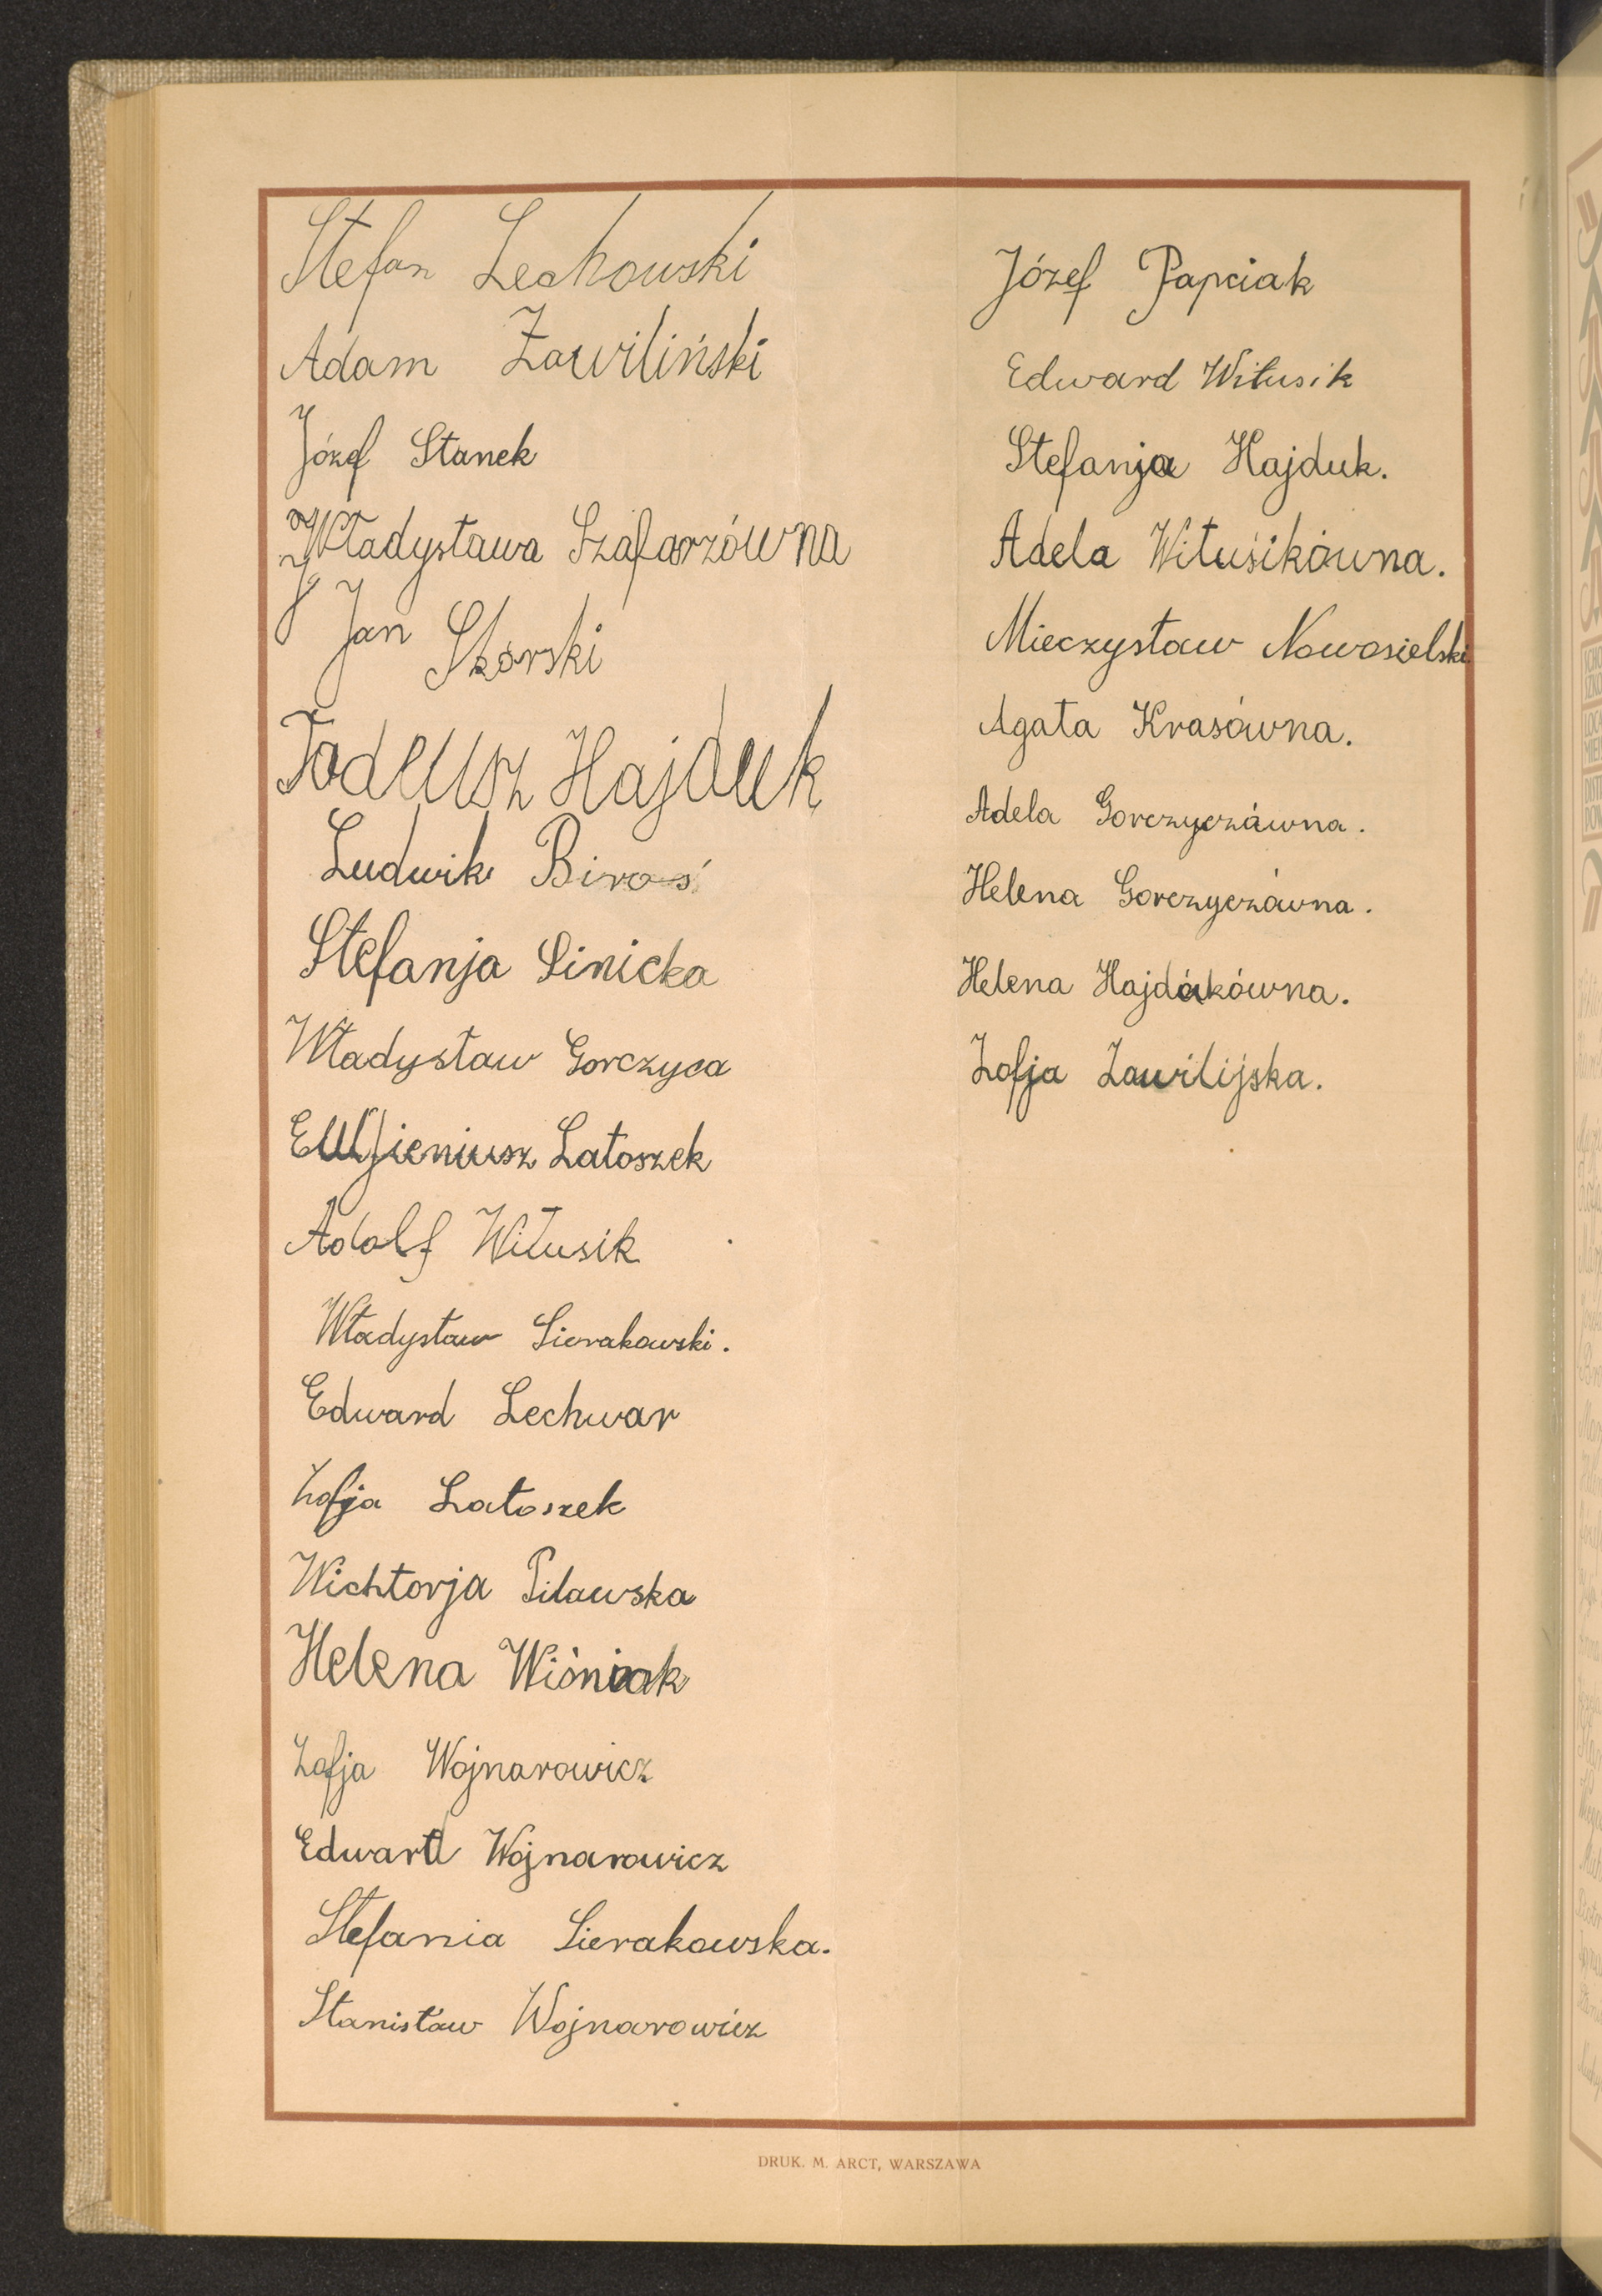 Stefan Lechowski
Adam Zawiliński
Józef Stanek
Władysława Szafarzówna
Jan Skórski
Tadeusz Hajduk
Ludwik Biroś
Stefanja Sinicka
Władysław Gorczyca
Eugieniusz Latoszek
Adolf Witusik
Władysław Sierakowski.
Edward Lechwar
Zofja Latoszek
Wichtorja Pilawska
Helena Wiśniak
Zofja Wojnarowicz
Edward Wojnarowicz
Stefania Sierakowska.
Stanisław Wojnarowicz
Józef Papciak
Edward Witusik
Stefanja Hajduk.
Adela Witusikówna.
Mieczysław Nowosielski
Agata Krasówna.
Adela Gorczyczówna.
Helena Gorczyczówna.
Helena Hajdukówna.
Zofja Zawilijska.
DRUK. M. ARCT, WARSZAWA